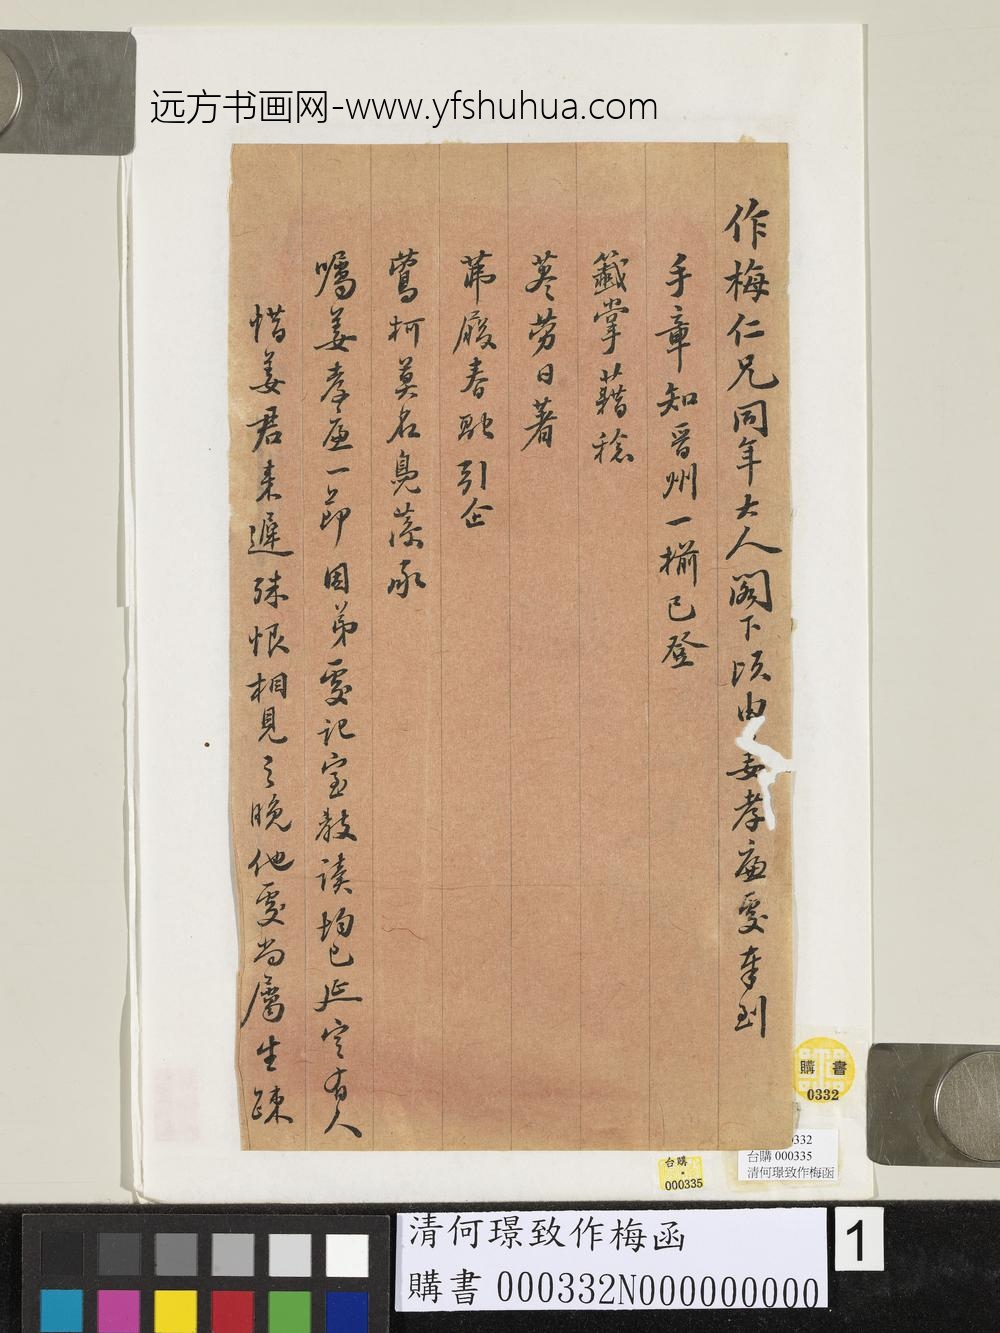 远方书画网-www.yfshuhua.com
作梅仁兄同年大人阁下顷由姜孝廉處奉到
手章知晋州一楄已登
籤掌藉稔
茶勞日著
茀履春融引企
鶯柯莫名鳧藻承
囑姜孝廉一節因弟處記室教讀均已延定有人
惜姜君来遲殊恨相見之晚他處尚屬生疎
購書
0332
332
台購 000335
清何璟致作梅函
台購
000335
清何璟致作梅函
購書 000332N000000000
1